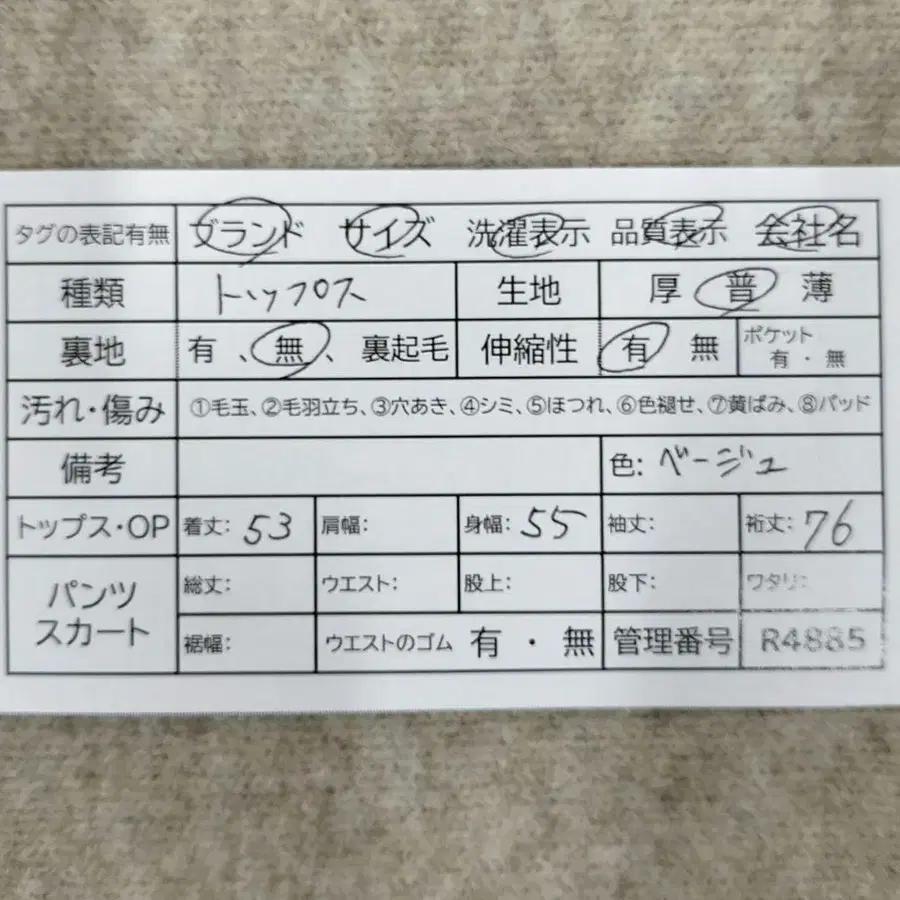 タグの表記有無 ブランド サイズ 洗濯表示 品質表示 会社名
種類 トップス 生地 厚 普 薄
裏地 有 、 無 、 裏起毛 伸縮性 有 無 ポケット 有 ・ 無
汚れ・傷み ①毛玉、②毛羽立ち、③穴あき、④シミ、⑤ほつれ、⑥色褪せ、⑦黄ばみ、⑧パッド
備考 色: ベージュ
トップス・OP 着丈: 53 肩幅: 身幅: 55 袖丈: 裄丈: 76
パンツ スカート 総丈: ウエスト: 股上: 股下: ワタリ:
裾幅: ウエストのゴム 有 ・ 無 管理番号 R4885